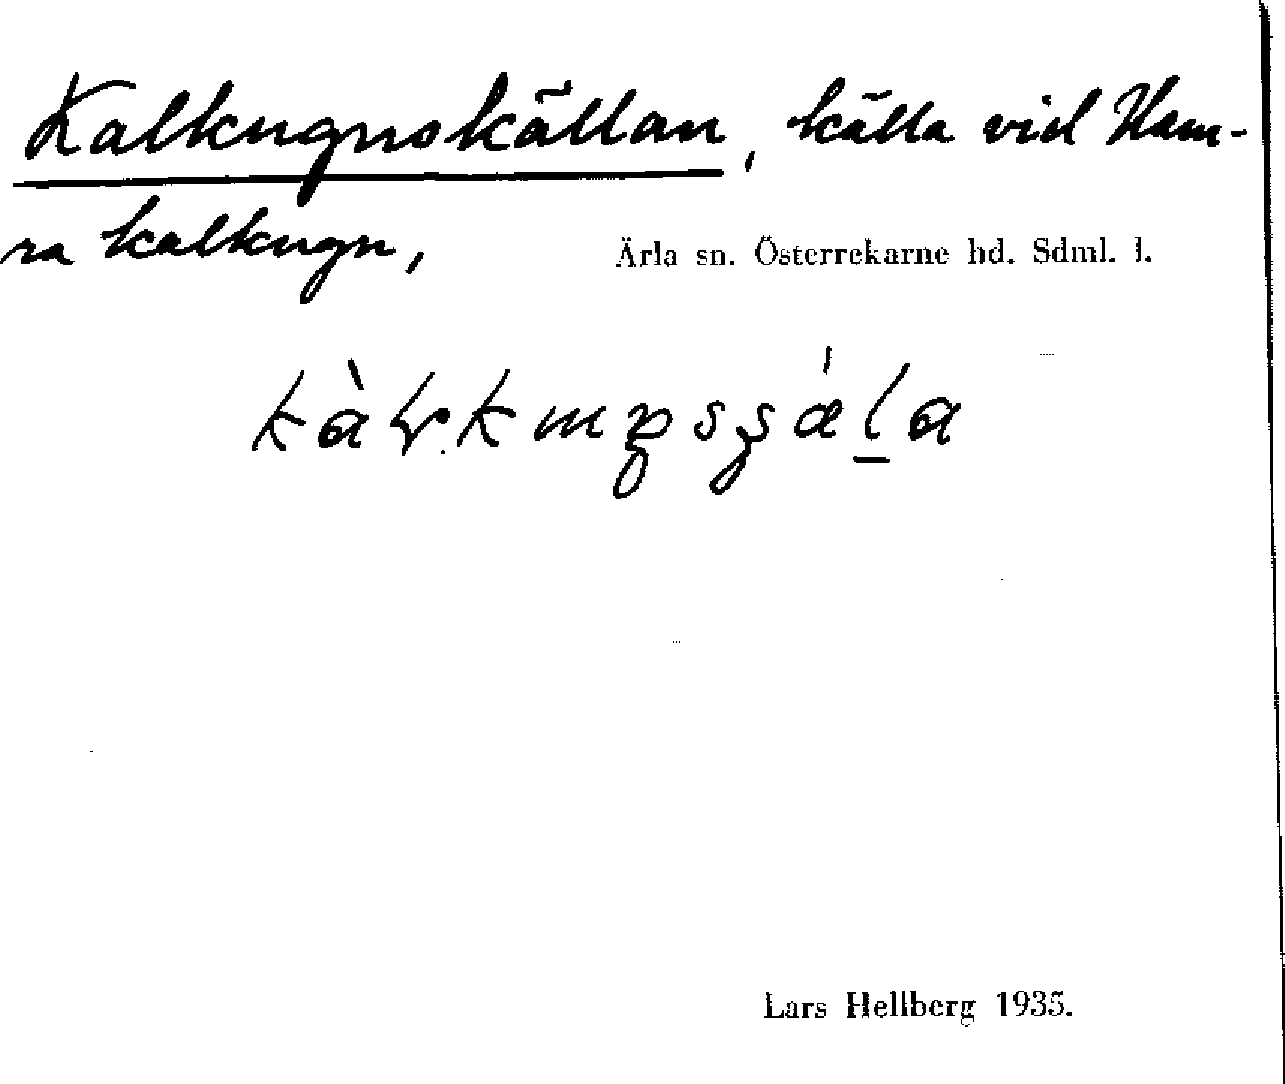 Kalkugnskällan, källa vid Ham-
ra kalkugn,
Ärla sn. Österrekarne hd. Sdml. l.
Lars Hellberg 1935.